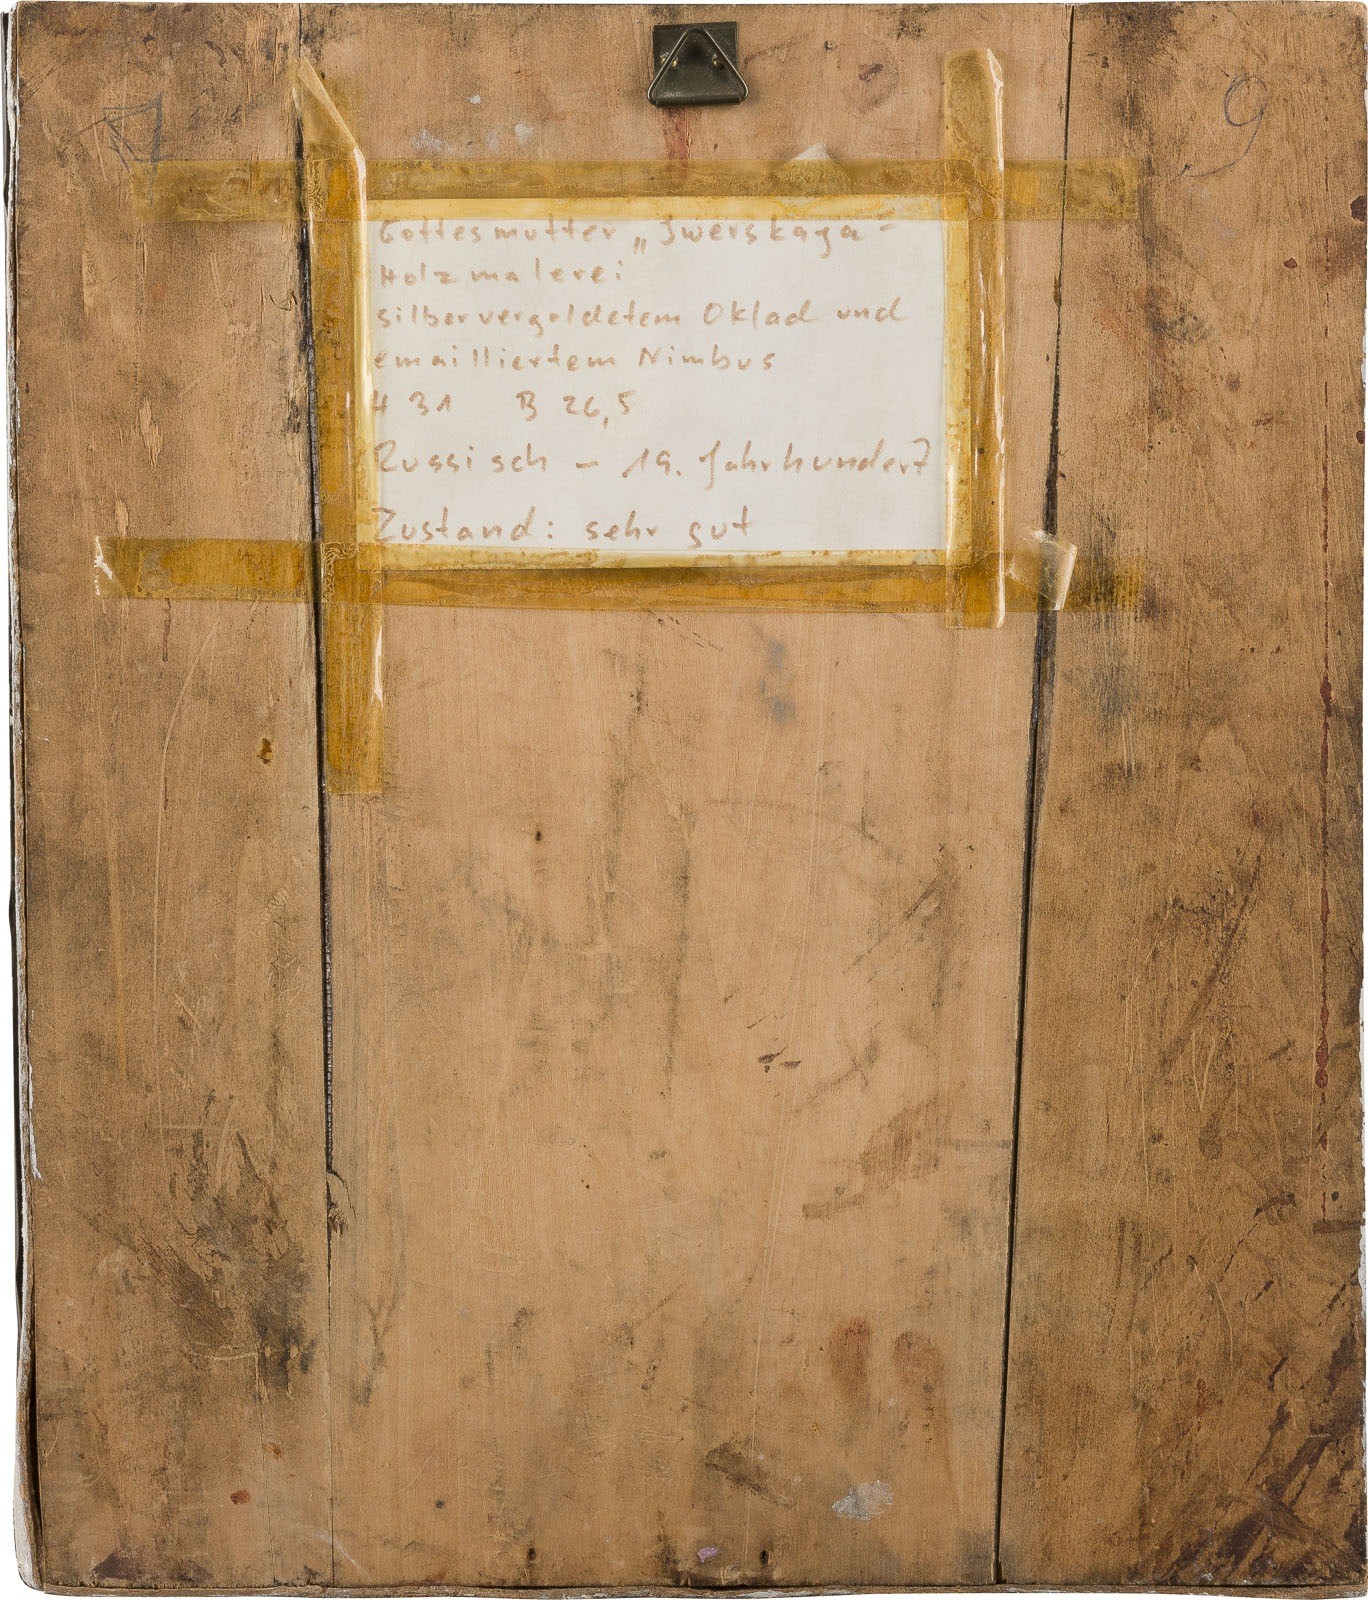 9
Gottesmutter „Iwerskaya"
Holzmalerei
silbervergoldetem Oklad und
emailliertem Nimbus
H 31 B 26,5
Russisch - 19. Jahrhundert
Zustand: sehr gut